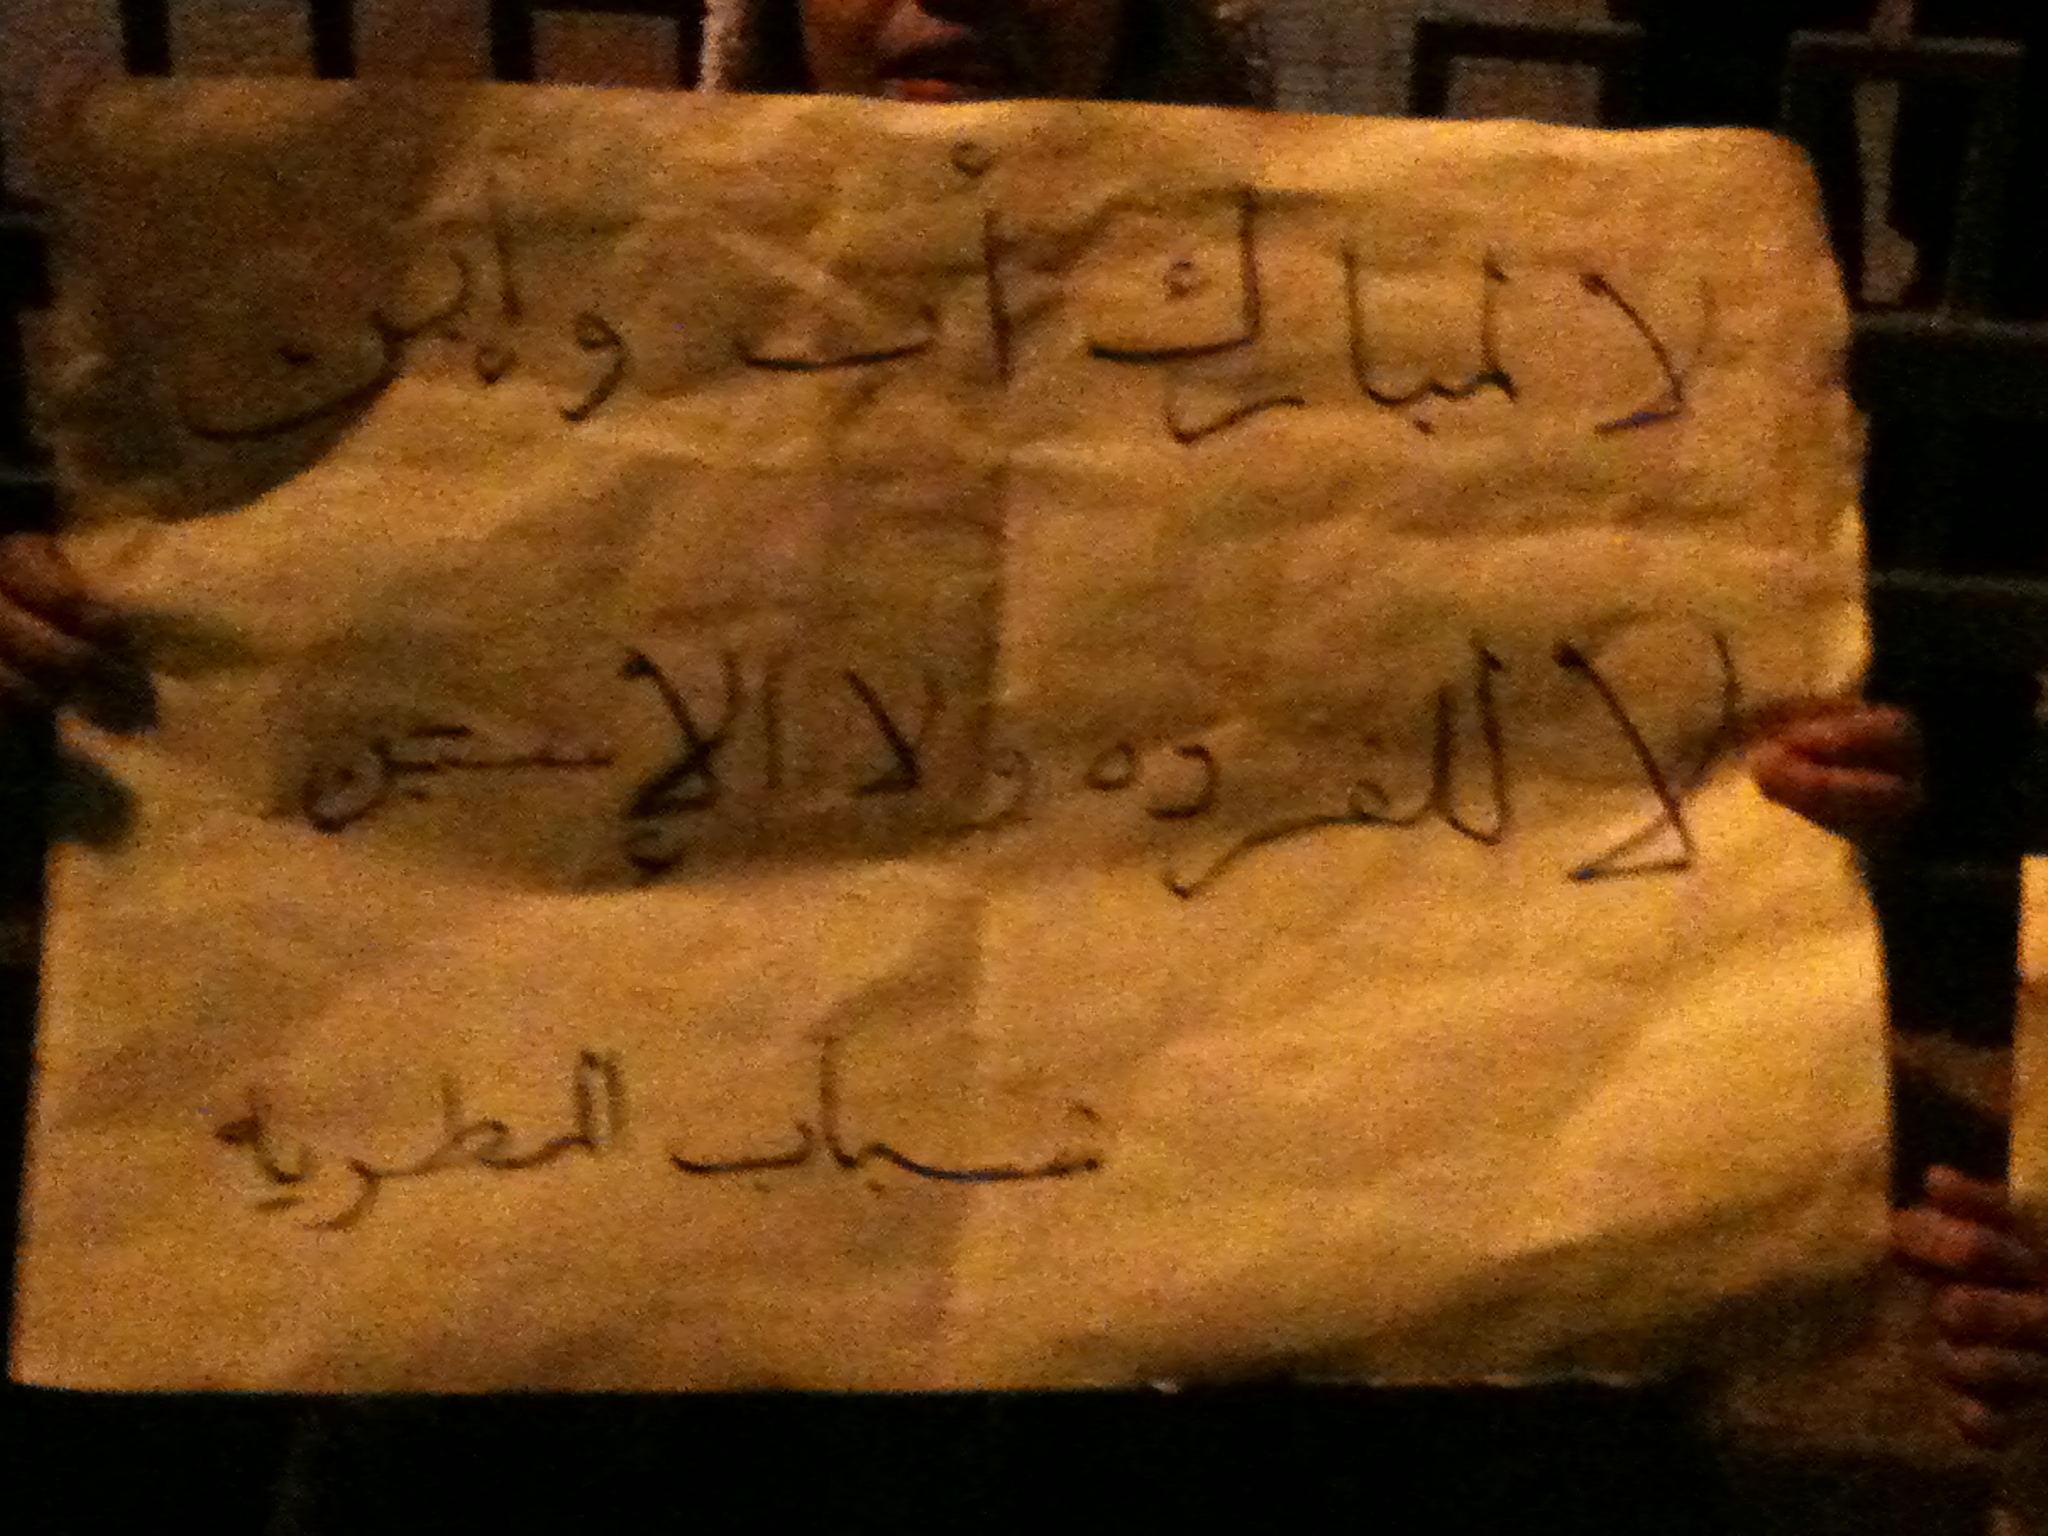 لا لمبارك أب وإبن
لا للفرده ولا الإستبن
شباب المطريه